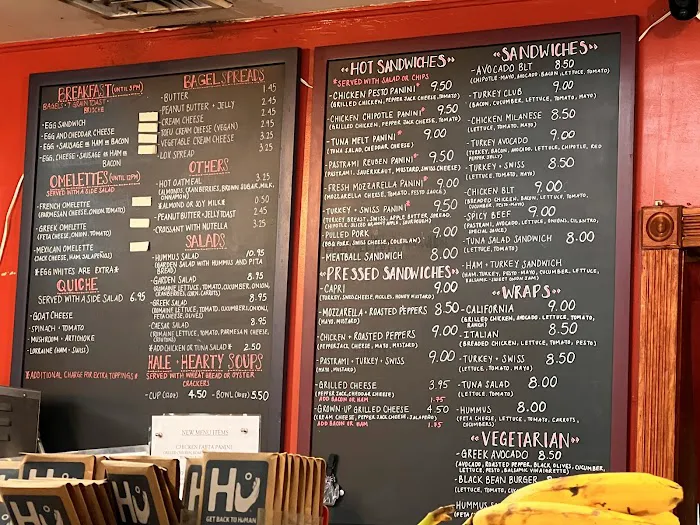 BREAKFAST (UNTIL 3PM)
BAGELS · 7 GRAIN TOAST ·
BRIOCHE
· EGG SANDWICH
· EGG AND CHEDDAR CHEESE
· EGG + SAUSAGE OR HAM OR
BACON
· EGG, CHEESE + SAUSAGE OR HAM OR
BACON
OMELETTES (UNTIL 12PM)
SERVED WITH A SIDE SALAD
· FRENCH OMELETTE
(PARMESAN CHEESE, ONION, TOMATO)
· GREEK OMELETTE
(FETA CHEESE, ONION, TOMATO)
· MEXICAN OMELETTE
(JACK CHEESE, HAM, JALAPEÑOS)
*EGG WHITES ARE EXTRA*
QUICHE
SERVED WITH A SIDE SALAD 6.95
· GOAT CHEESE
· SPINACH + TOMATO
· MUSHROOM + ARTICHOKE
· LORRAINE (HAM + SWISS)
*ADDITIONAL CHARGE FOR EXTRA TOPPINGS*
BAGEL SPREADS
· BUTTER 1.45
· PEANUT BUTTER + JELLY 2.45
· CREAM CHEESE 2.45
· TOFU CREAM CHEESE (VEGAN) 2.45
· VEGETABLE CREAM CHEESE 3.25
· LOX SPREAD 3.25
OTHERS
· HOT OATMEAL 3.25
(ALMONDS, CRANBERRIES, BROWN SUGAR, MILK,
CINNAMON)
*ALMOND OR SOY MILK 0.50
· PEANUT BUTTER + JELLY TOAST 2.45
· CROISSANT WITH NUTELLA 3.25
SALADS
· HUMMUS SALAD 10.95
(GARDEN SALAD WITH HUMMUS AND PITA
BREAD)
· GARDEN SALAD 8.95
(ROMAINE LETTUCE, TOMATO, CUCUMBER, ONION,
CRANBERRIES, CORN, CARROTS)
· GREEK SALAD 8.95
(ROMAINE LETTUCE, TOMATO, CUCUMBER, ONION,
FETA CHEESE, OLIVES)
· CAESAR SALAD 8.95
(ROMAINE LETTUCE, TOMATO, PARMESAN CHEESE,
CROUTONS)
*ADD CHICKEN OR TUNA SALAD* 2.50
HALE + HEARTY SOUPS
SERVED WITH WHEAT BREAD OR OYSTER
CRACKERS
· CUP 4.50 · BOWL 5.50
HOT SANDWICHES
*SERVED WITH SALAD OR CHIPS
· CHICKEN PESTO PANINI* 9.50
(GRILLED CHICKEN, PEPPER JACK CHEESE, TOMATO)
· CHICKEN CHIPOTLE PANINI* 9.50
(GRILLED CHICKEN, PEPPER JACK CHEESE, TOMATO)
· TUNA MELT PANINI* 9.00
(TUNA SALAD, CHEDDAR CHEESE)
· PASTRAMI REUBEN PANINI* 9.50
(PASTRAMI, SAUERKRAUT, MUSTARD, SWISS CHEESE)
· FRESH MOZZARELLA PANINI* 9.00
(MOZZARELLA CHEESE, TOMATO, PESTO)
· TURKEY + SWISS PANINI* 9.50
(TURKEY BREAST, SWISS, APPLE BUTTER SPREAD,
· PULLED PORK 9.00
(BBQ PORK, SWISS CHEESE, COLESLAW)
· MEATBALL SANDWICH 8.00
PRESSED SANDWICHES
· CAPRI 9.00
(TURKEY, SWISS CHEESE, PICKLES, HONEY MUSTARD)
· MOZZARELLA + ROASTED PEPPERS 8.50
(MAYO, MUSTARD)
· CHICKEN + ROASTED PEPPERS 9.00
(PEPPERJACK CHEESE, MAYO, MUSTARD)
· PASTRAMI + TURKEY + SWISS 9.00
(MAYO, MUSTARD)
· GRILLED CHEESE 3.95
(PEPPER JACK, CHEDDAR CHEESE)
ADD BACON OR HAM 1.75
· GROWN-UP GRILLED CHEESE 4.50
(CREAM CHEESE, PEPPER JACK CHEESE, JALAPEÑO)
ADD BACON OR HAM 1.95
SANDWICHES
· AVOCADO BLT 8.50
(CHIPOTLE-MAYO, AVOCADO, BACON, LETTUCE, TOMATO)
· TURKEY CLUB 9.00
(BACON, CUCUMBER, LETTUCE, TOMATO, MAYO)
· CHICKEN MILANESE 8.50
(LETTUCE, TOMATO, MAYO)
· TURKEY AVOCADO 9.00
(TURKEY, BACON, AVOCADO, LETTUCE, CHIPOTLE, RED
PEPPER JELLY)
· TURKEY + SWISS 8.50
(LETTUCE, TOMATO, MAYO)
· CHICKEN BLT 9.00
(BREADED CHICKEN, BACON, LETTUCE, TOMATO,
· SPICY BEEF 9.00
(PASTRAMI, AVOCADO, LETTUCE, ONIONS, CILANTRO,
SPECIAL SAUCE)
· TUNA SALAD SANDWICH 8.00
(LETTUCE, TOMATO)
· HAM + TURKEY SANDWICH
(HAM, TURKEY, PESTO-MAYO, CUCUMBER, LETTUCE,
WRAPS
· CALIFORNIA 9.00
(GRILLED CHICKEN, AVOCADO, LETTUCE, TOMATO,
RANCH)
· ITALIAN 8.50
(BREADED CHICKEN, LETTUCE, TOMATO, PESTO)
· TURKEY + SWISS 8.50
(LETTUCE, TOMATO, MAYO)
· TUNA SALAD 8.00
(LETTUCE, TOMATO)
· HUMMUS 8.00
(FETA CHEESE, LETTUCE, TOMATO, CARROTS,
CUCUMBERS)
VEGETARIAN
· GREEK AVOCADO 8.50
(AVOCADO, ROASTED PEPPER, BLACK OLIVES, CUCUMBER,
LETTUCE, PESTO, BALSAMIC VINAIGRETTE)
· BLACK BEAN BURGER 8
(LETTUCE, TOMATO, CUCUMBER
· HUMMUS
NEW MENU ITEMS
CHICKEN FAJITA PANINI
Hu
GET BACK TO HUMAN